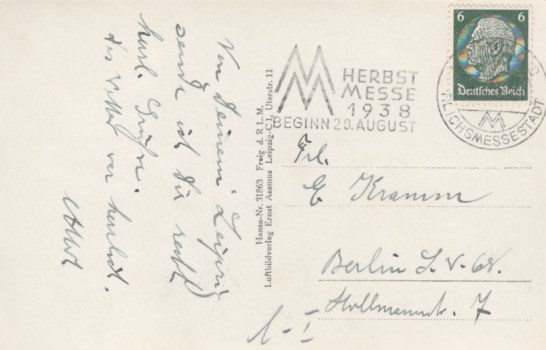 Von Deinem Leipzig
sende ich Dir recht
herzl. Grüße.
Hansa-Nr. 31863 Freig. d. R. L. M.
Luftbildverlag Ernst Assmus Leipzig-C.1, Uferstr. 11
HERBST
MESSE
1938
BEGINN 28. AUGUST
6 6
Deutsches Reich
REICHSMESSESTADT
Frl.
E. Kramm
Berlin S.W. 68.
Hollmannstr. 7